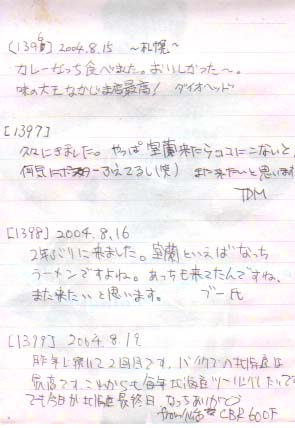 [1396] 2004.8.15 〜札幌〜
カレーなっち食べました。おいしかった〜。
味の大王なかじま店最高! ダイオヘッド
[1397]
久々にきました。やっぱ室蘭来たらココにこないと
何気に ふえてるし(笑) また来たいと思います
TDM
[1398] 2004.8.16
2年ぶりに来ました。室蘭といえばなっち
ラーメンですよね。あっちも来てたんですね、
また来たいと思います。 ブー氏
[1399] 2004.8.19
昨年に続いて2回目です。バイクでの北海道は
最高です。これからも毎年北海道ツーリングしたいです
でも今日が北海道最終日 なっちありがとう
from CBR600F